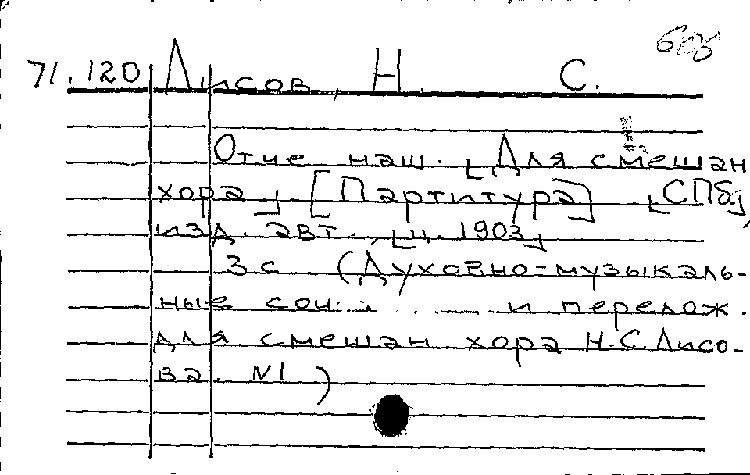 71.120 Лисов, Н. С.
Отче наш. [Для смешан
хора] [Партитура] [СПб],
изд. авт., [ц. 1903]
3 с (Духовно-музыкаль-
ные соч. ... и перелож.
для смешан хора Н.С. Лисо-
ва №1)